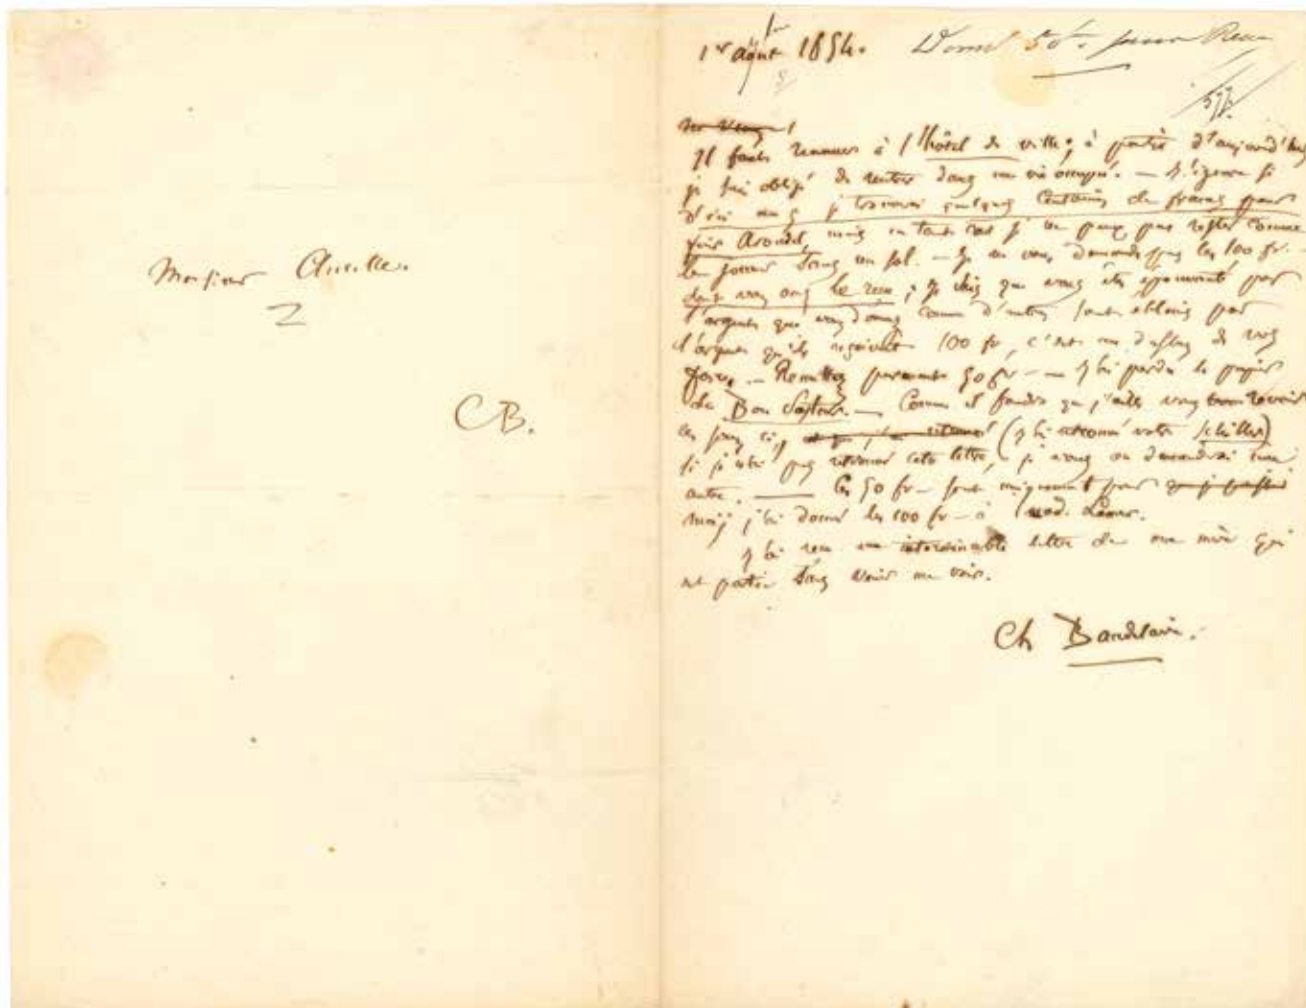 Monsieur Ancelle.
CB.
1er août 1854. Donné 50 f.
Il faut renoncer à l'hôtel de ville; à partir d'aujourd'hui
je suis obligé de rentrer dans ma vie occupée. — J'ignore si
d'ici je trouverai quelques centaines de francs pour
Arondel, mais en tout cas je ne peux pas rester comme
sans un sol. — Je ne vous demande pas les 100 fr. —
le reçu; je sais que vous êtes épouvanté par
l'argent que vous donnez comme d'autres sont éblouis par
l'argent qu'ils reçoivent 100 fr, c'est au dessus de vos
forces. — Remettez 50 fr — — J'ai perdu le papier
du Bon Pasteur. — Comme il faudra que j'aille vous revoir
ces jours ci, (j'ai retrouvé votre Schiller)
si je n'ai pas retrouvé cette lettre, je vous en demanderai une
autre. — Ces 50 fr — sont uniquement pour
moi; j'ai donné les 100 fr — à Mad. Lemer.
J'ai reçu une interminable lettre de ma mère qui
est partie sans venir me voir.
Ch Baudelaire.